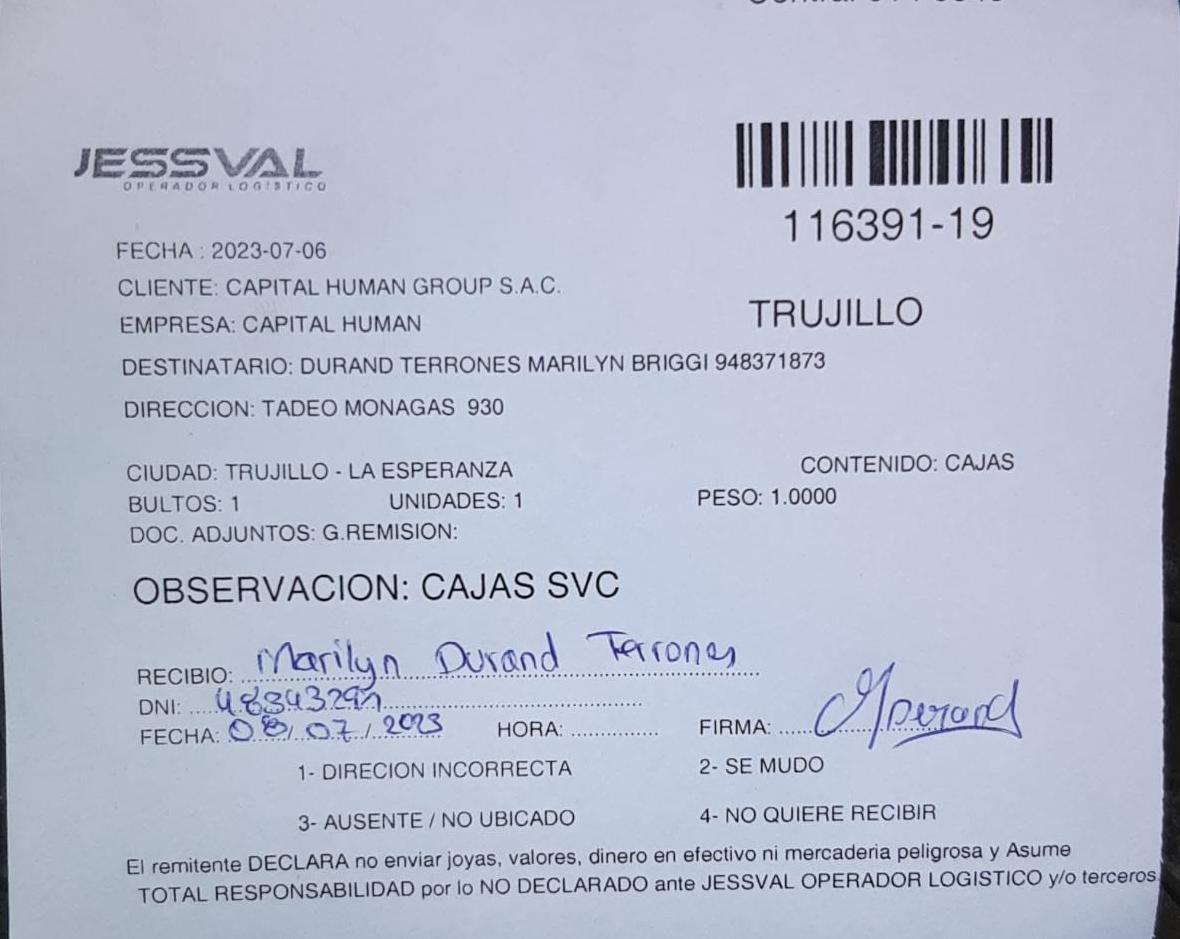 JESSVAL
OPERADOR LOGISTICO
116391-19
FECHA : 2023-07-06
CLIENTE: CAPITAL HUMAN GROUP S.A.C.
EMPRESA: CAPITAL HUMAN
TRUJILLO
DESTINATARIO: DURAND TERRONES MARILYN BRIGGI 948371873
DIRECCION: TADEO MONAGAS 930
CIUDAD: TRUJILLO - LA ESPERANZA
CONTENIDO: CAJAS
BULTOS: 1 UNIDADES: 1 PESO: 1.0000
DOC. ADJUNTOS: G.REMISION:
OBSERVACION: CAJAS SVC
RECIBIO: Marilyn Durand Terrones
DNI: 48343291
FECHA: 08/07/2023 HORA: .............. FIRMA:
1- DIRECION INCORRECTA 2- SE MUDO
3- AUSENTE / NO UBICADO 4- NO QUIERE RECIBIR
El remitente DECLARA no enviar joyas, valores, dinero en efectivo ni mercaderia peligrosa y Asume
TOTAL RESPONSABILIDAD por lo NO DECLARADO ante JESSVAL OPERADOR LOGISTICO y/o terceros